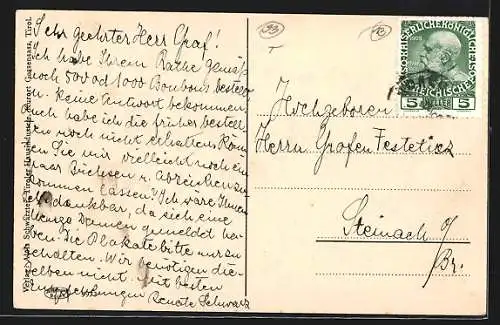 Sehr geehrter Herr Graf!
Ich habe Ihrem Rathe gemäß
noch 500 od 1000 Bonbons bestellt
u. keine Antwort bekommen
auch habe ich die früher bestell-
ten noch nicht erhalten. Kön-
nen Sie mir vielleicht noch ein
paar Büchsen u. Abzeichen zu
kommen lassen? Ich wäre Ihnen
dankbar, da sich eine
Menge Damen gemeldet ha-
ben. Die Plakate bitte nur zu
behalten. Wir benötigen die-
selben nicht. Mit besten
Empfehlungen Renate Schwarz
Hochgeboren
Herrn Grafen Festetics
Steinach a/
Br.
KAISERLICHE KÖNIGLICHE
ÖSTERREICHISCHE
5 HELLER 5
Verlag Alois Tiroler Gossensass, Tirol.